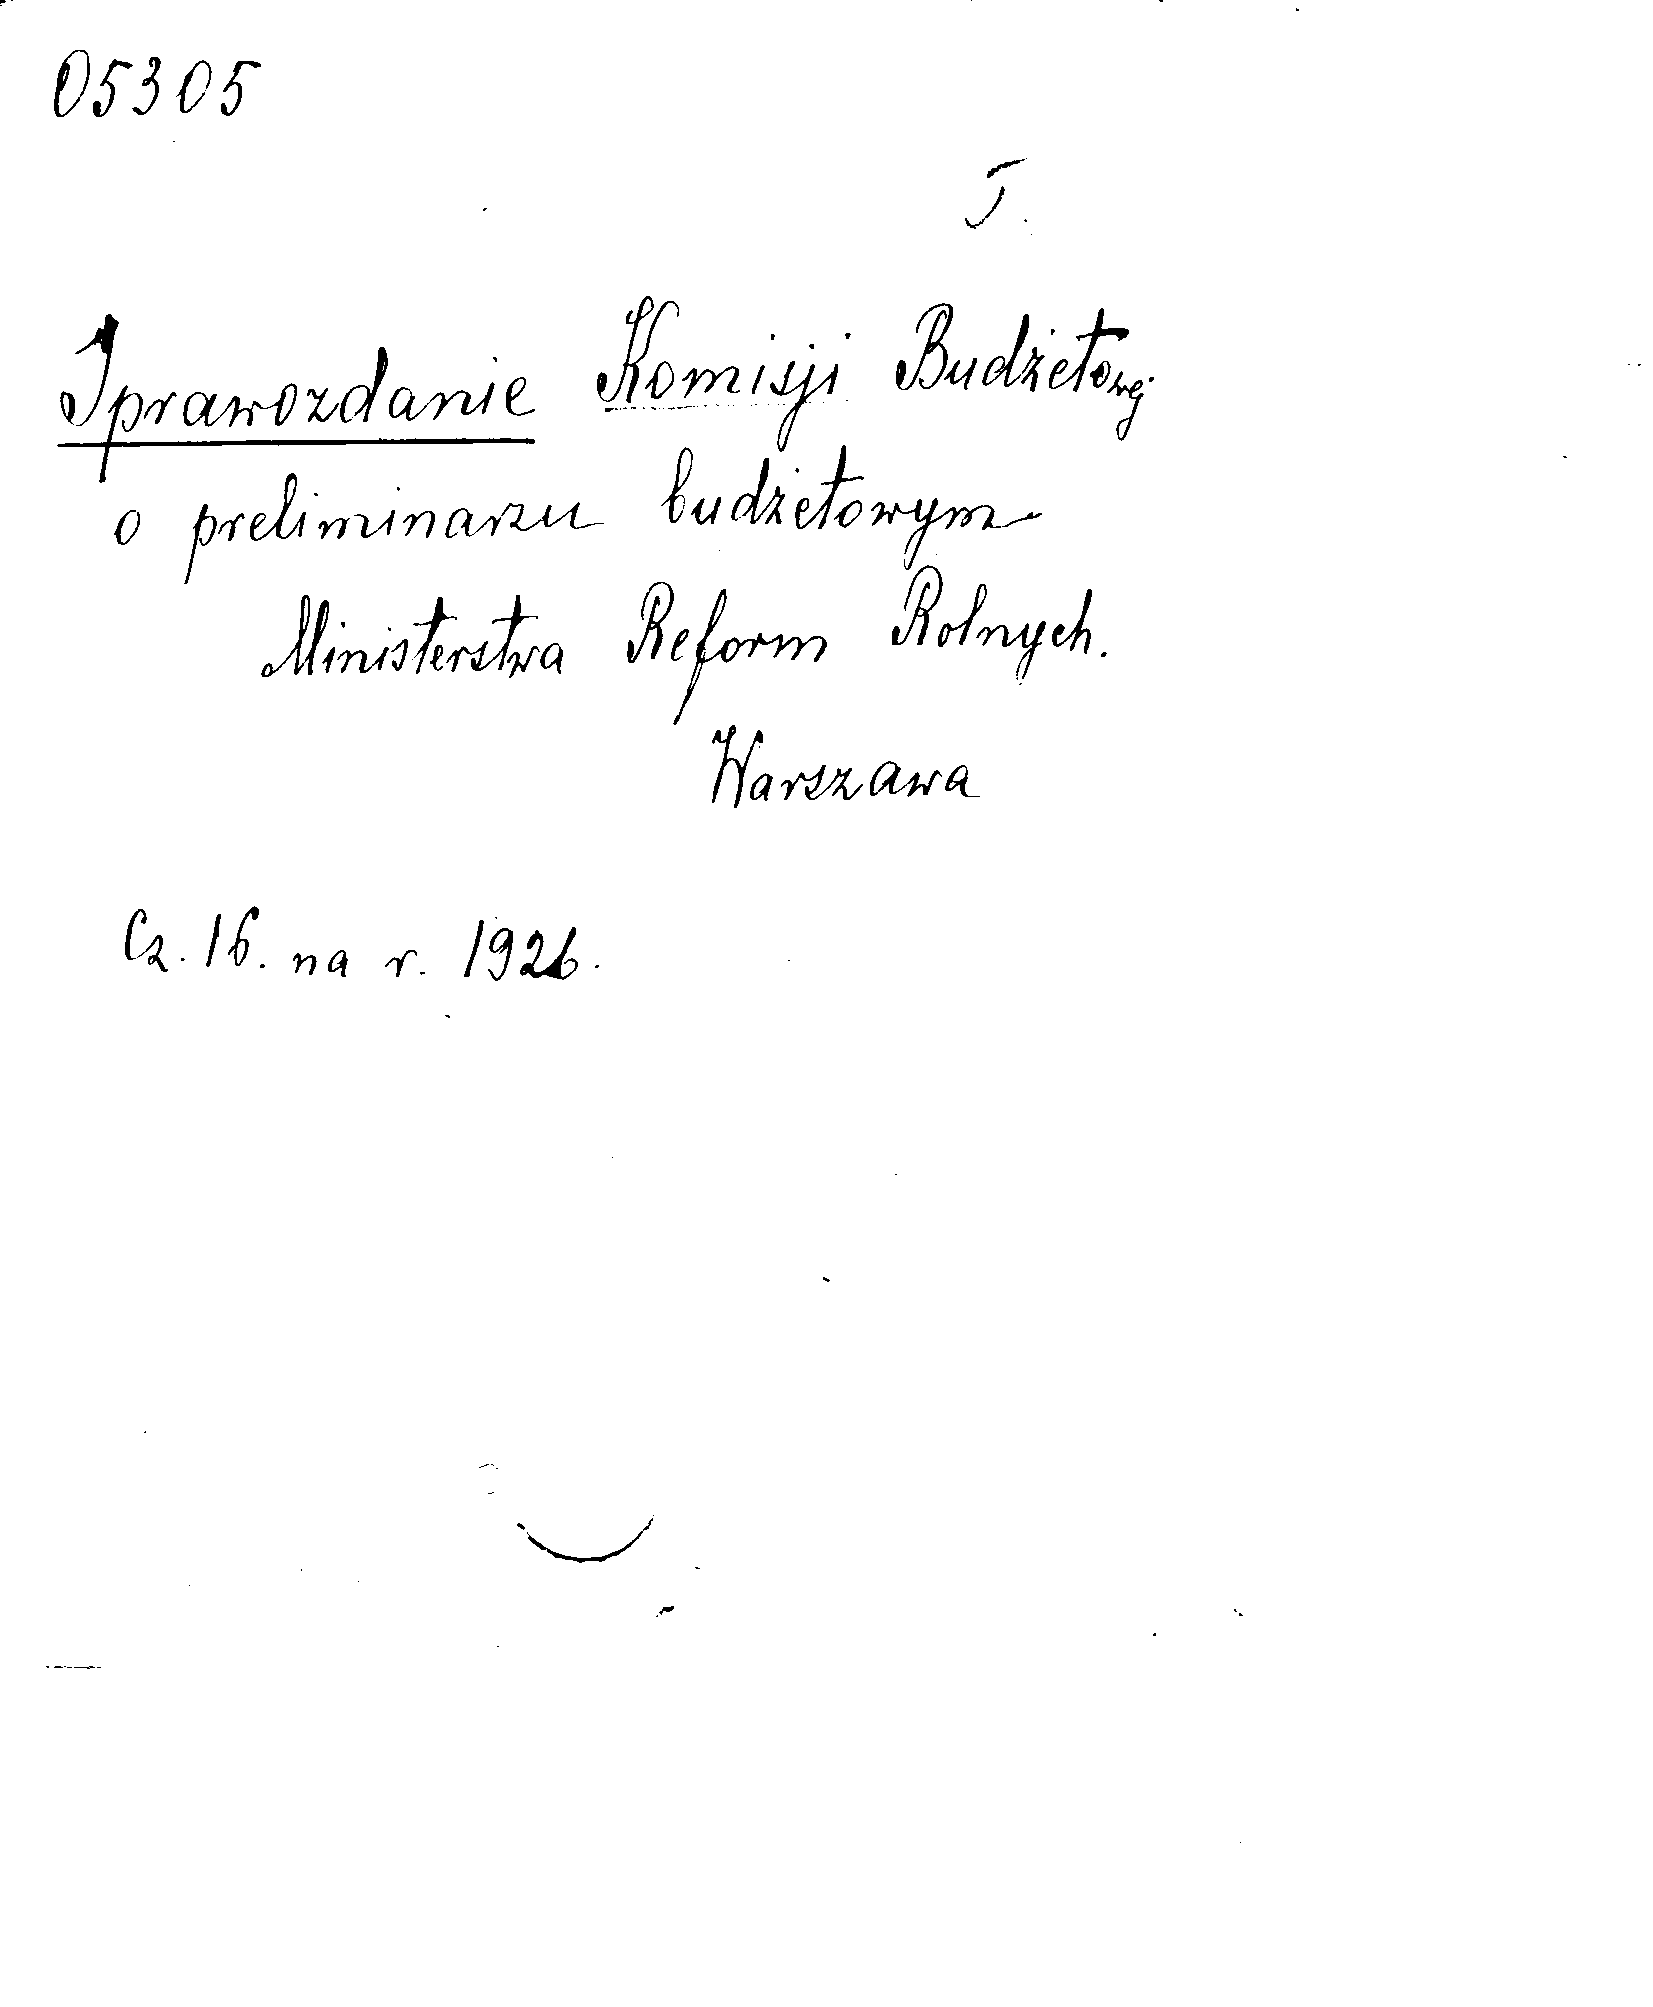 05305
J.
Sprawozdanie Komisji Budżetowej
o preliminarzu budżetowym
Ministerstwa Reform Rolnych.
Warszawa
Cz. 16. na r. 1926.